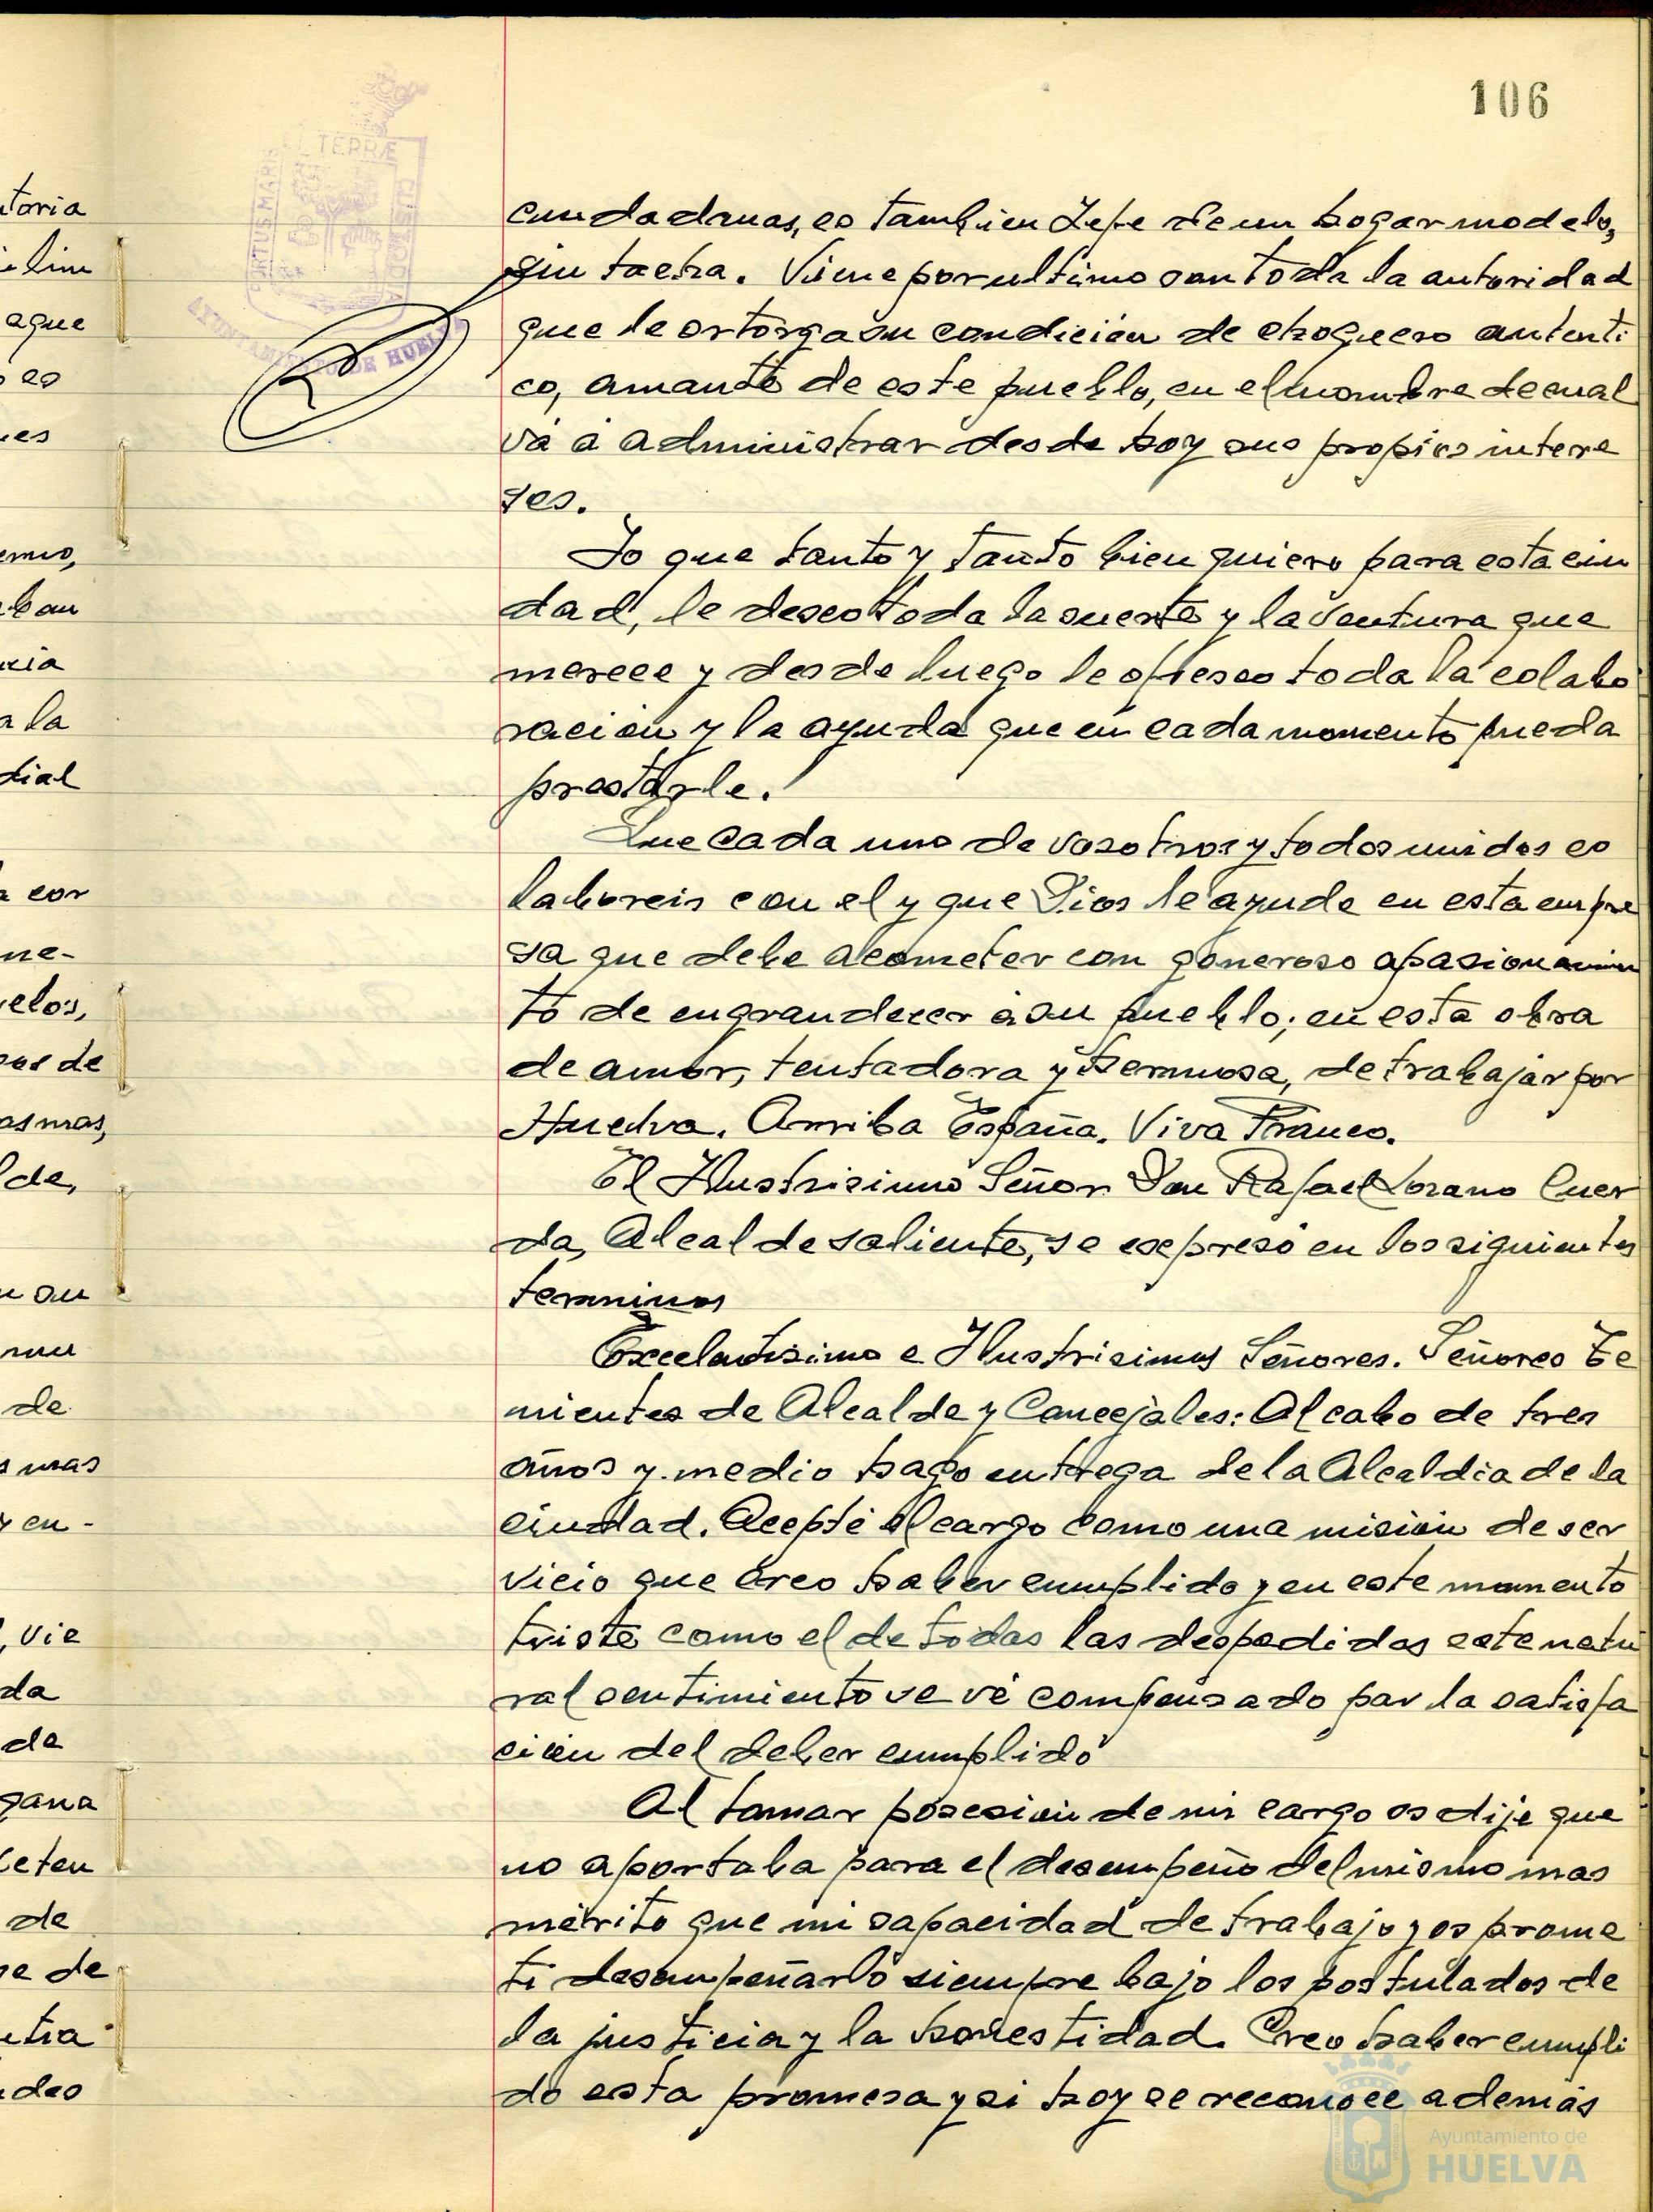 106
PORTUS MARIS
TERRÆ
CUSTODIA
AYUNTAMIENTO DE HUELVA
toria
lim
aque
es
ues
emio,
ban
ncia
a la
dial
cor
ne-
uelos,
de
asmas,
lde,
su
de
mas
y en-
, vie
da
de
gana
eten
de
e de
tra
ciudadanas, es tambien Jefe de un hogar modelo,
sin tacha. Viene por ultimo con toda la autoridad
que le ortorga su condición de choquero autenti
co, amante de este pueblo, en el nombre de cual
vá a administrar desde hoy sus propios intere
ses.
Yo que tanto y tanto bien quiero para esta ciu
dad, le deseo toda la suerte y la ventura que
merece y desde luego le ofresco toda la colabo
racion y la ayuda que en cada momento pueda
prestarle.
Que cada uno de vosotros y todos unidos co
laboreis con el y que Dios le ayude en esta empre
sa que debe acometer con generoso apasionamien
to de engrandecer a su pueblo; en esta obra
de amor, tentadora y hermosa, de trabajar por
Huelva. Arriba España. Viva Franco.
El Ilustrisimo Señor Don Rafael Lozano Cuer
da, Alcalde saliente, se expresó en los siguientes
terminos
Excelentisimo e Ilustrisimos Señores. Señores Te
nientes de Alcalde y Concejales: Al cabo de tres
años y medio hago entrega de la Alcaldia de la
ciudad. Acepté el cargo como una misión de ser
vicio que creo haber cumplido y en este momento
triste como el de todas las despedidas este natu
ral sentimiento se vé compensado por la satisfa
ción del deber cumplido
Al tomar posesión de mi cargo os dije que
no aportaba para el desempeño del mismo mas
mérito que mi capacidad de trabajo y os prome
ti desempeñarlo siempre bajo los postulados de
la justicia y la honestidad. Creo haber cumpli
do esta promesa y si hoy se reconoce además
Ayuntamiento de
HUELVA